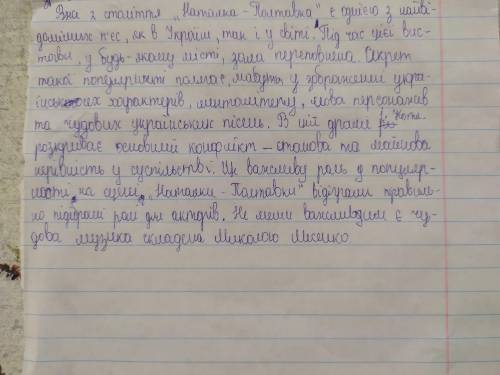 Вже 2 століття „Наталка-Полтавка" є однією з найві-
доміших п'єс, як в Україні, так і у світі. Під час цієї вис-
тави, у будь-якому місті, зала переповнена. Секрет
такої популярності полягає, мабуть, у зображенні укра-
їнських характерів, менталітету, мова персонажів
та чудових українських пісень. В цій драмі І. Котл.
розкриває основний конфлікт – станова та майнова
нерівність у суспільстві. Ще важливу роль у популяр-
ності на сцені „Наталки-Полтавки" відіграли правиль-
но підібрані ролі для акторів. Не менш важливим є чу-
дова музика складена Миколою Лисенко